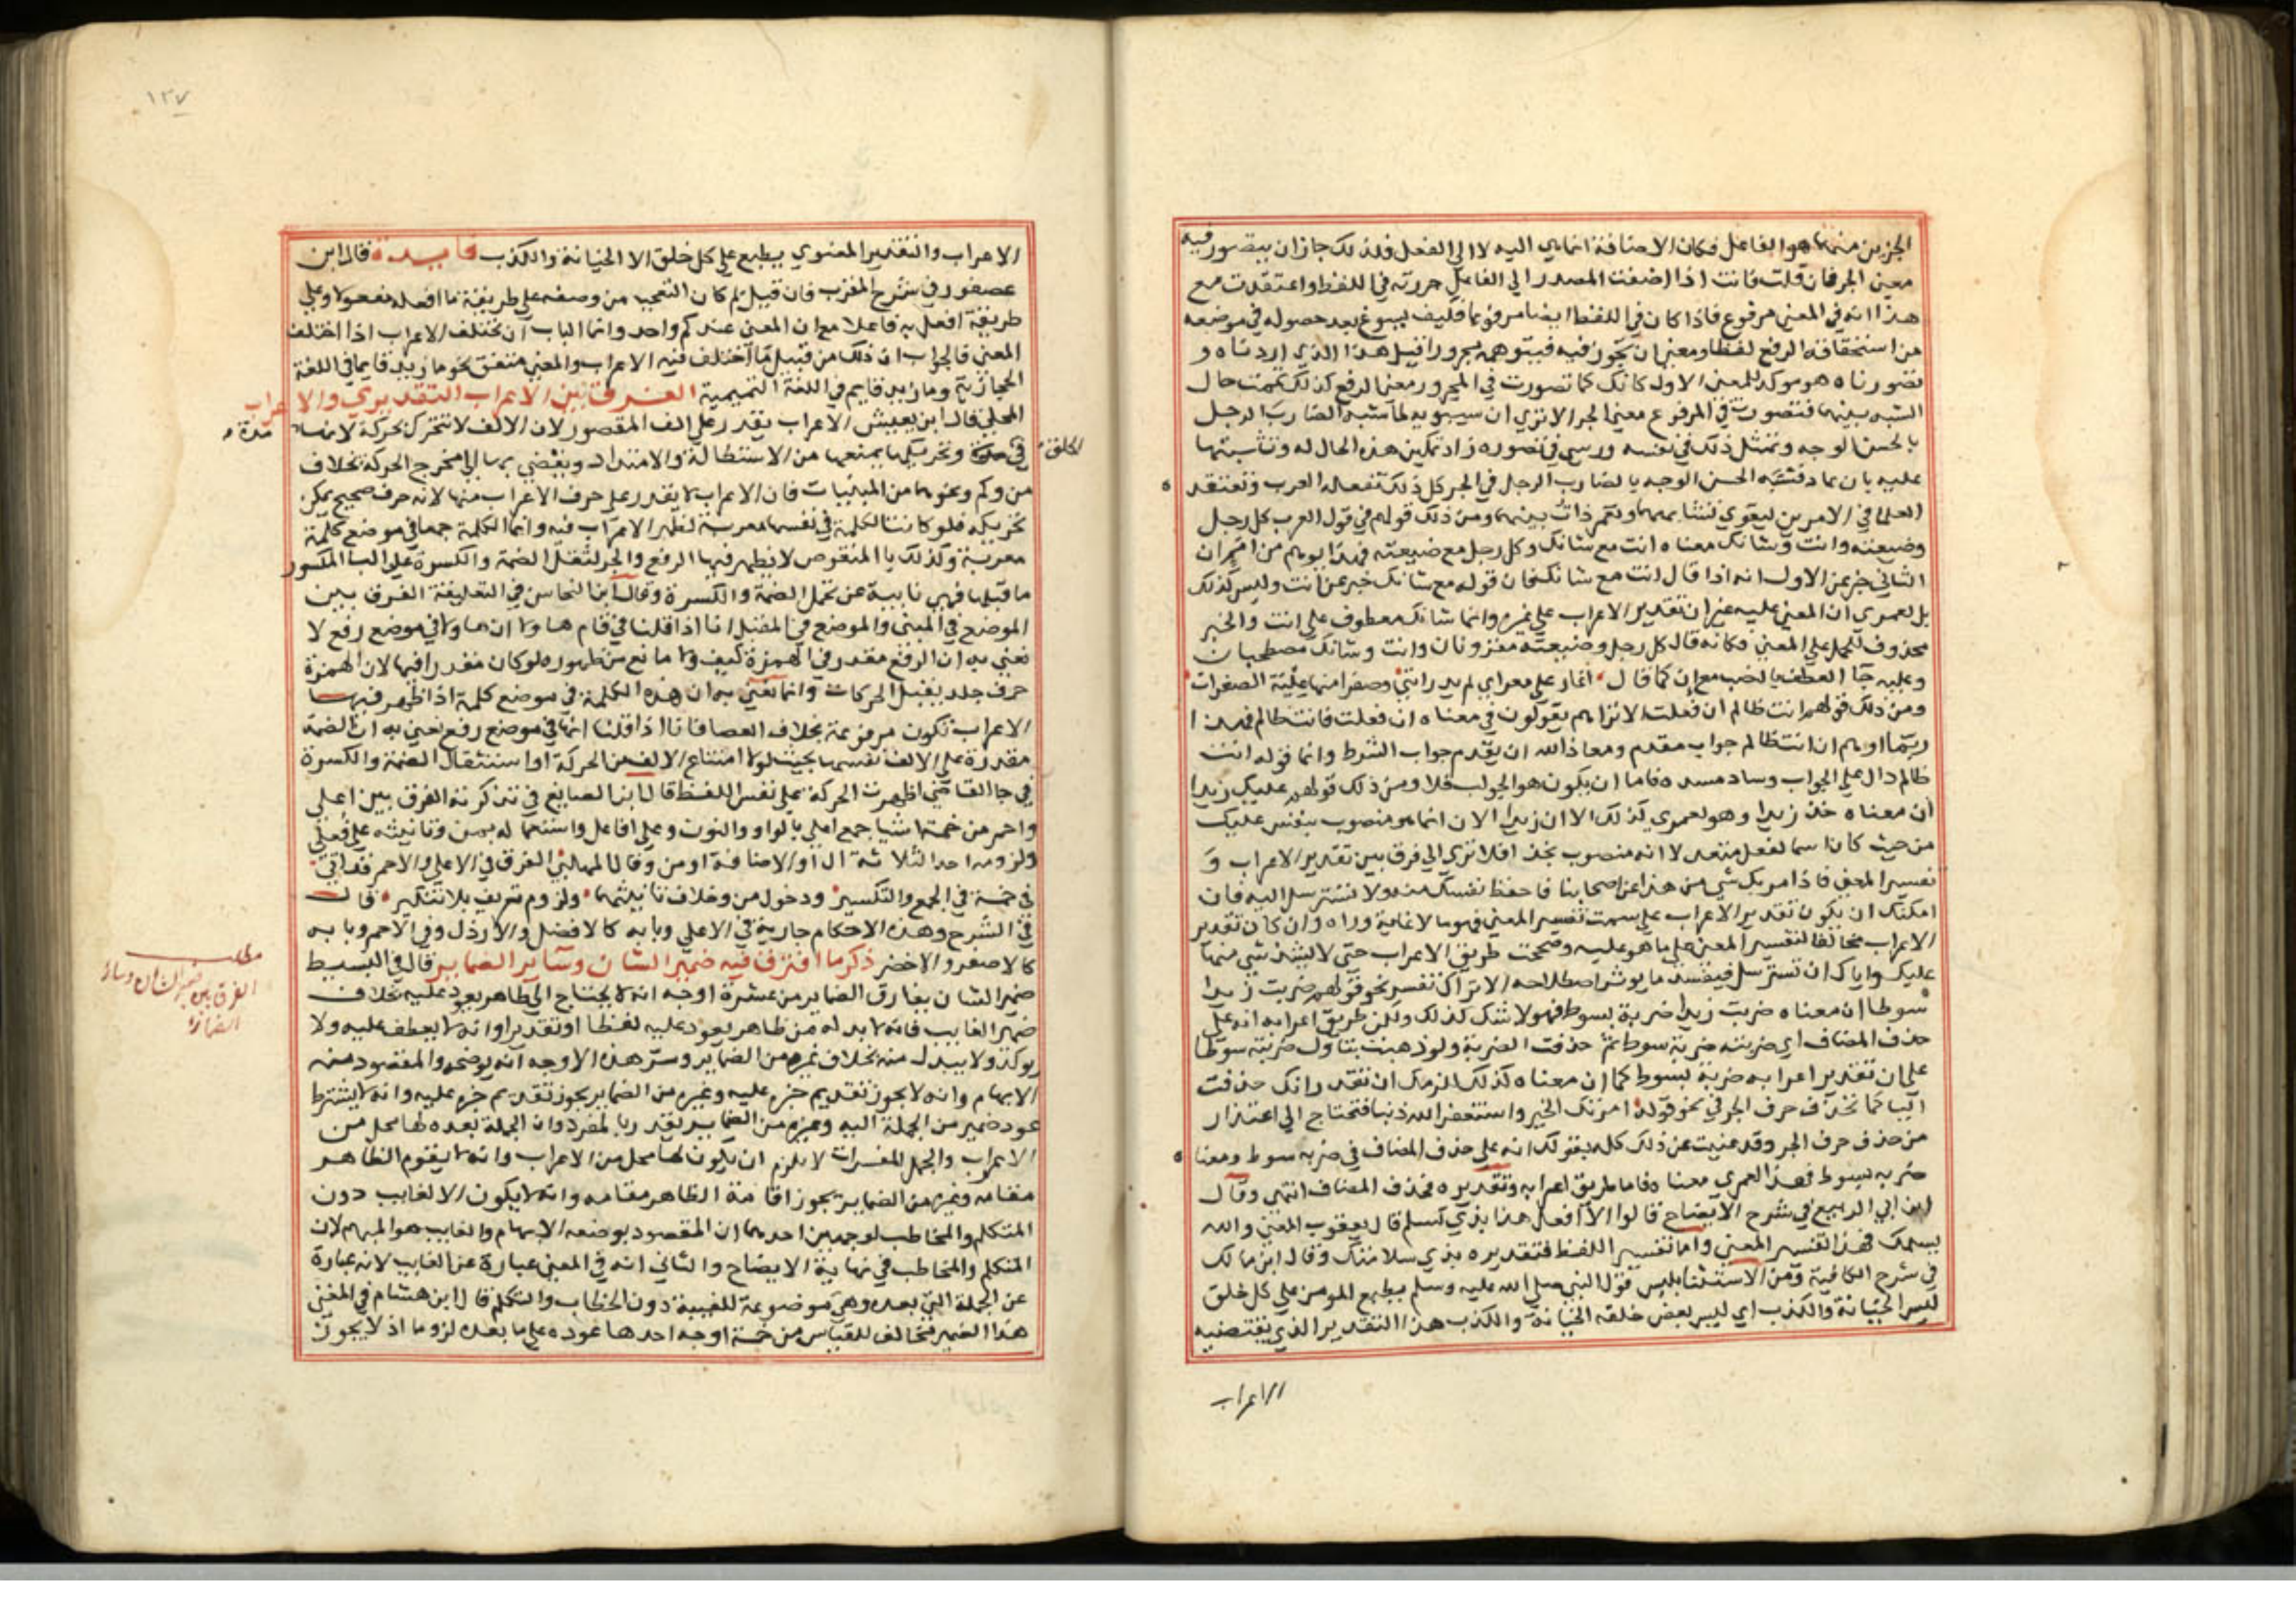 الجزين منهما هو الفاعل فكان الاضافة انما هي اليه لا الى الفعل فلذلك جاز ان يتصور فيه
معنى الجر فان قلت فانت اذا اضفت المصدر الى الفاعل جررته في اللفظ واعتقدت مع
هذا انه في المعنى مرفوع فاذا كان في اللفظ ايضا مرفوعا فكيف يسوغ بعد حصوله في موضعه
من استحقاقه الرفع لفظا ومعنى ان يحوز فيه فيتوهمه مجرورا قيل هذا الذي اردناه و
تصورناه هو موكد للمعنى الاول كانك كما تصورت في المجرور معنى الرفع كذلك تممت حال
الشبه بينهما فتصورت في المرفوع معنى الجر الا ترى ان سيبويه لما شبه الضارب الرجل
بالحسن الوجه وتمثل ذلك في نفسه ورسى في تصوره زاد تمكين هذه الحال له وتثبيتها
عليه بان عاد فشبه الحسن الوجه بالضارب الرجل في الجر كل ذلك تفعله العرب وتعتقد
العلما في الامرين ليقوى تشابههما وتعمر ذات بينهما ومن ذلك قولهم في قول العرب كل رجل
وضيعته وانت وشانك معناه انت مع شانك وكل رجل مع ضيعته فهذا يوهم من امم ان
الثاني خبر عن الاول انه اذا قال انت مع شانك فان قوله مع شانك خبر عن انت وليس كذلك
بل لعمري ان المعنى عليه غير ان تقدير الاعراب على غيره وانما شانك معطوف على انت والخبر
محذوف للحمل على المعنى فكانه قال كل رجل وضيعته مقرونان وانت وشانك مصطحبان
وعليه جا العطف بالنصب مع ان كما قال اغار على معزاي لم يدر انني وصفرا منها عبلة الصفرات
ومن ذلك قولهم انت ظالم ان فعلت الا تراهم يقولون في معناه ان فعلت فانت ظالم فهذا
ربما اوهم ان انت ظالم جواب مقدم ومعاذ الله ان يقدم جواب الشرط وانما قوله انت
ظالم دال على الجواب وساد مسده فاما ان يكون هو الجواب فلا ومن ذلك قولهم عليك زيدا
ان معناه خذ زيدا وهو لعمري كذلك الا ان زيدا الان انما هو منصوب بنفس عليك
من حيث كان اسما لفعل متعد لا انه منصوب بخذ افلا ترى الى فرق بين تقدير الاعراب و
تفسير المعنى فاذا مر بك شي من هذا عن اصحابنا فاحفظ نفسك منه ولا تسترسل اليه فان
امكنك ان يكون تقدير الاعراب على سمت تفسير المعنى فهو ما لا غاية وراه وان كان تقدير
الاعراب مخالفا لتفسير المعنى على ما هو عليه وصححت طريق الاعراب حتى لا يشذ شي منها
عليك واياك ان تسترسل فيفسد ما يوثر اصطلاحه الا تراك تفسر نحو قولهم ضربت زيدا
سوطا ان معناه ضربت زيدا ضربة بسوط فهو لا شك كذلك ولكن طريق اعرابه انه على
حذف المضاف اي ضربته ضربة سوط ثم حذفت الضربة ولو ذهبت تتاول ضربته سوطا
على ان تقدير اعرابه ضربة بسوط كما ان معناه كذلك لزمك ان تقدر انك حذفت
البا كما تحذف حرف الجر في نحو قوله امرتك الخير واستغفر الله ذنبا فتحتاج الى اعتذار
من حذف حرف الجر وقد غنيت عن ذلك كله بقولك انه على حذف المضاف في ضربة سوط ومعناه
ضربة بسوط فهذا لعمري معناه فاما طريق اعرابه وتقديره فحذف المضاف انتهى وقال
ابن ابي الربيع في شرح الايضاح قالوا الا افعل هذا بذي تسلم قال يعقوب المعنى والله
يسلمك فهذا تفسير المعنى واما تفسير اللفظ فتقديره بذي سلامتك وقال ابن مالك
في شرح الكافية ومن الاستثنا بليس قول النبي صلى الله عليه وسلم يطبع المومن على كل خلق
ليس الخيانة والكذب اي ليس بعض خلقه الخيانة والكذب هذا التقدير الذي يقتضيه
الاعراب
١٣٧
الاعراب والتقدير المعنوي يطبع على كل خلق الا الخيانة والكذب فايدة قال ابن
عصفور في شرح المقرب فان قيل لم كان التعجب من وصفه على طريقة ما افعله مفعولا وعلى
طريقة افعل به فاعلا مع ان المعنى عندكم واحد وانما الباب ان يختلف الاعراب اذا اختلف
المعنى فالجواب ان ذلك من قبيل ما اختلف فيه الاعراب والمعنى متفق نحو ما زيد قايما في اللغة
الحجازية وما زيد قايم في اللغة التميمية الفرق بين الاعراب التقديري والاعراب
المحلي قال ابن يعيش الاعراب يقدر على الف المقصور لان الالف لا تتحرك بحركة لانها مدة
في الحلق وتحريكها يمنعها من الاستطالة والامتداد ويفضي بها الى مخرج الحركة بخلاف
من وكم ونحوهما من المبنيات فان الاعراب لا يقدر على حرف الاعراب منها لانه حرف صحيح يمكن
تحريكه فلو كانت الكلمة في نفسها معربة لظهر الاعراب فيه وانما الكلمة جمعا في موضع كلمة
معربة وكذلك يا المنقوص لا يظهر فيها الرفع والجر لثقل الضمة والكسرة على اليا المكسور
ما قبلها فهي نايبة عن تحمل الضمة والكسرة وقال ابن النحاس في التعليقة الفرق بين
الموضع في المبنى والموضع في المعتل انا اذا قلنا في قام هاولا ان هاولا في موضع رفع لا
نعني به ان الرفع مقدر في الهمزة كيف ولا مانع من ظهوره لو كان مقدرا فيها لان الهمزة
حرف جلد يقبل الحركات وانما نعني به ان هذه الكلمة في موضع كلمة اذا ظهر فيها
الاعراب تكون مرفوعة بخلاف العصا فانا اذا قلنا انها في موضع رفع نعني به ان الضمة
مقدرة على الالف نفسها بحيث لولا امتناع الالف من الحركة او استثقال الضمة والكسرة
في جا القاضي لظهرت الحركة على نفس اللفظ قال ابن الصايغ في تذكرته الفرق بين اعلى
واحمر من خمسة اشيا جمع اعلى بالواو والنون وعلى افاعل واستعماله بمن وتانيثه على فعلى
ولزومه احد الثلاثة ال او الاضافة او من وقال المهلبي الفرق في الاعلى والاحمر قد اتى
في خمسة في الجمع والتكسير ودخول من وخلاف تانيثهما ولزوم تعريف بلا تنكير قال
في الشرح وهذه الاحكام جارية في الاعلى وبابه كالافضل والارذل وفي الاحمر وبابه
كالاصفر والاخضر ذكر ما افترق فيه ضمير الشان وساير الضماير قال في البسيط
ضمير الشان يفارق الضماير من عشرة اوجه انه لا يحتاج الى ظاهر يعود عليه بخلاف
ضمير الغايب فانه لا بد له من ظاهر يعود عليه لفظا او تقديرا وانه لا يعطف عليه ولا
يوكد ولا يبدل منه بخلاف غيره من الضماير وسر هذه الاوجه انه يوضحه والمقصود منه
الابهام وانه لا يجوز تقديم خبره عليه وغيره من الضماير يجوز تقديم خبره عليه وانه لا يشترط
عود ضمير من الجملة اليه وغيره من الضماير يقدر بالمفرد وان الجملة بعده لها محل من
الاعراب والجمل المفسرات لا يلزم ان يكون لها محل من الاعراب وانه لا يقوم الظاهر
مقامه وغيره من الضماير يجوز اقامة الظاهر مقامه وانه لا يكون الا لغايب دون
المتكلم والمخاطب لوجهين احدهما ان المقصود بوضعه الابهام والغايب هو المبهم لان
المتكلم والمخاطب في نهاية الايضاح والثاني انه في المعنى عبارة عن الغايب لانه عبارة
عن الجملة التي بعده وهي موضوعة للغيبة دون الخطاب والتكلم قال ابن هشام في المغني
هذا الضمير مخالف للقياس من خمسة اوجه احدها عوده على ما بعده لزوما اذ لا يجوز
مطلب
الفرق بين ضمير الشان وساير
الضماير